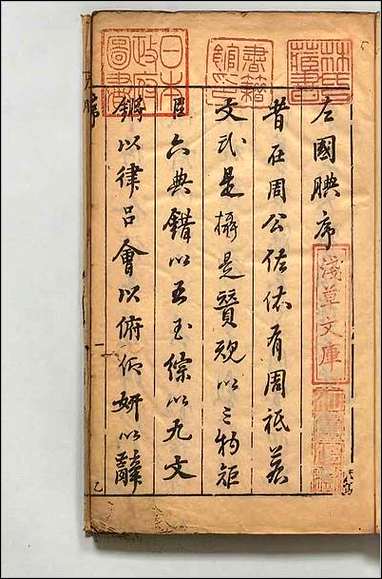 林氏藏書
書籍館印
日本政府圖書
左國腴序
淺草文庫
昔在周公佐佑有周祗若
文武是攝是贊以三物矩
六典錯以五玉綜以九文
鏘以律呂會以俯仰妍以辭
序
一